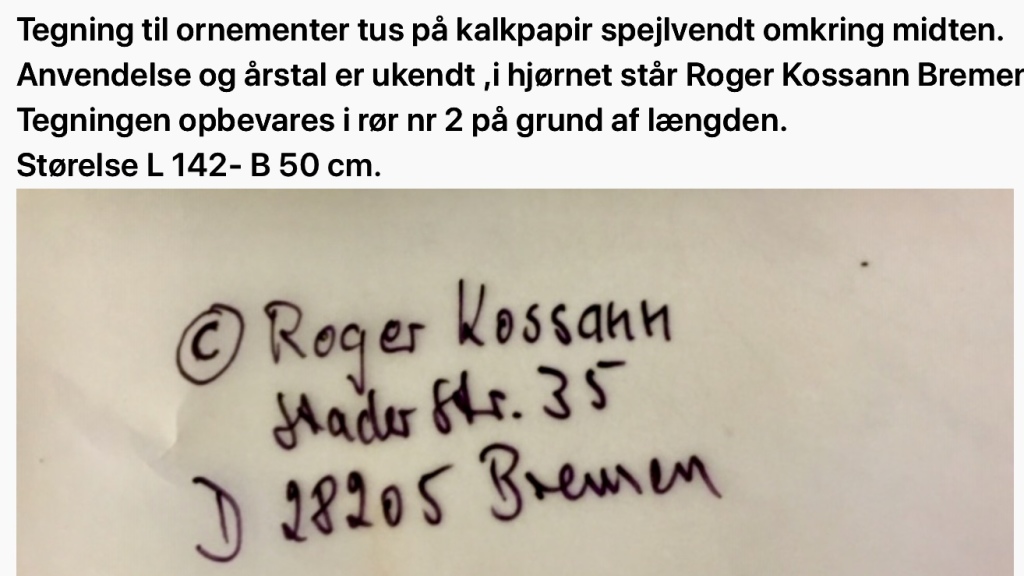 Tegning til ornementer tus på kalkpapir spejlvendt omkring midten.
Anvendelse og årstal er ukendt ,i hjørnet står Roger Kossann Bremen
Tegningen opbevares i rør nr 2 på grund af længden.
Størelse L 142- B 50 cm.
© Roger Kossann
Stader Str. 35
D 28205 Bremen